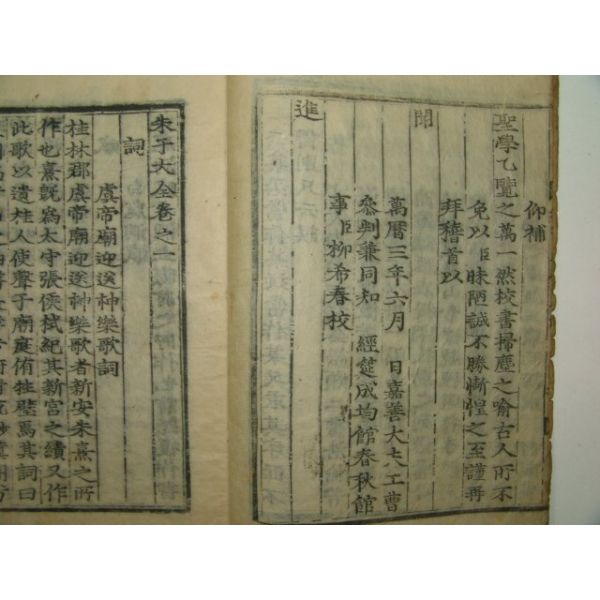 仰補
聖學乙覽之萬一然校書掃塵之喻古人所不
免以臣昧陋誠不勝慚惶之至謹再
拜稽首以
聞
萬曆三年六月 日嘉善大夫工曹
參判兼同知 經筵成均館春秋館
事臣柳希春校
進
朱子大全卷之一
詞
虞帝廟迎送神樂歌詞
桂林郡虞帝廟迎送神樂歌者新安朱熹之所
作也熹旣爲太守張侯栻紀其新宮之績又作
此歌以遺桂人使聲于廟庭侑牲璧焉其詞曰